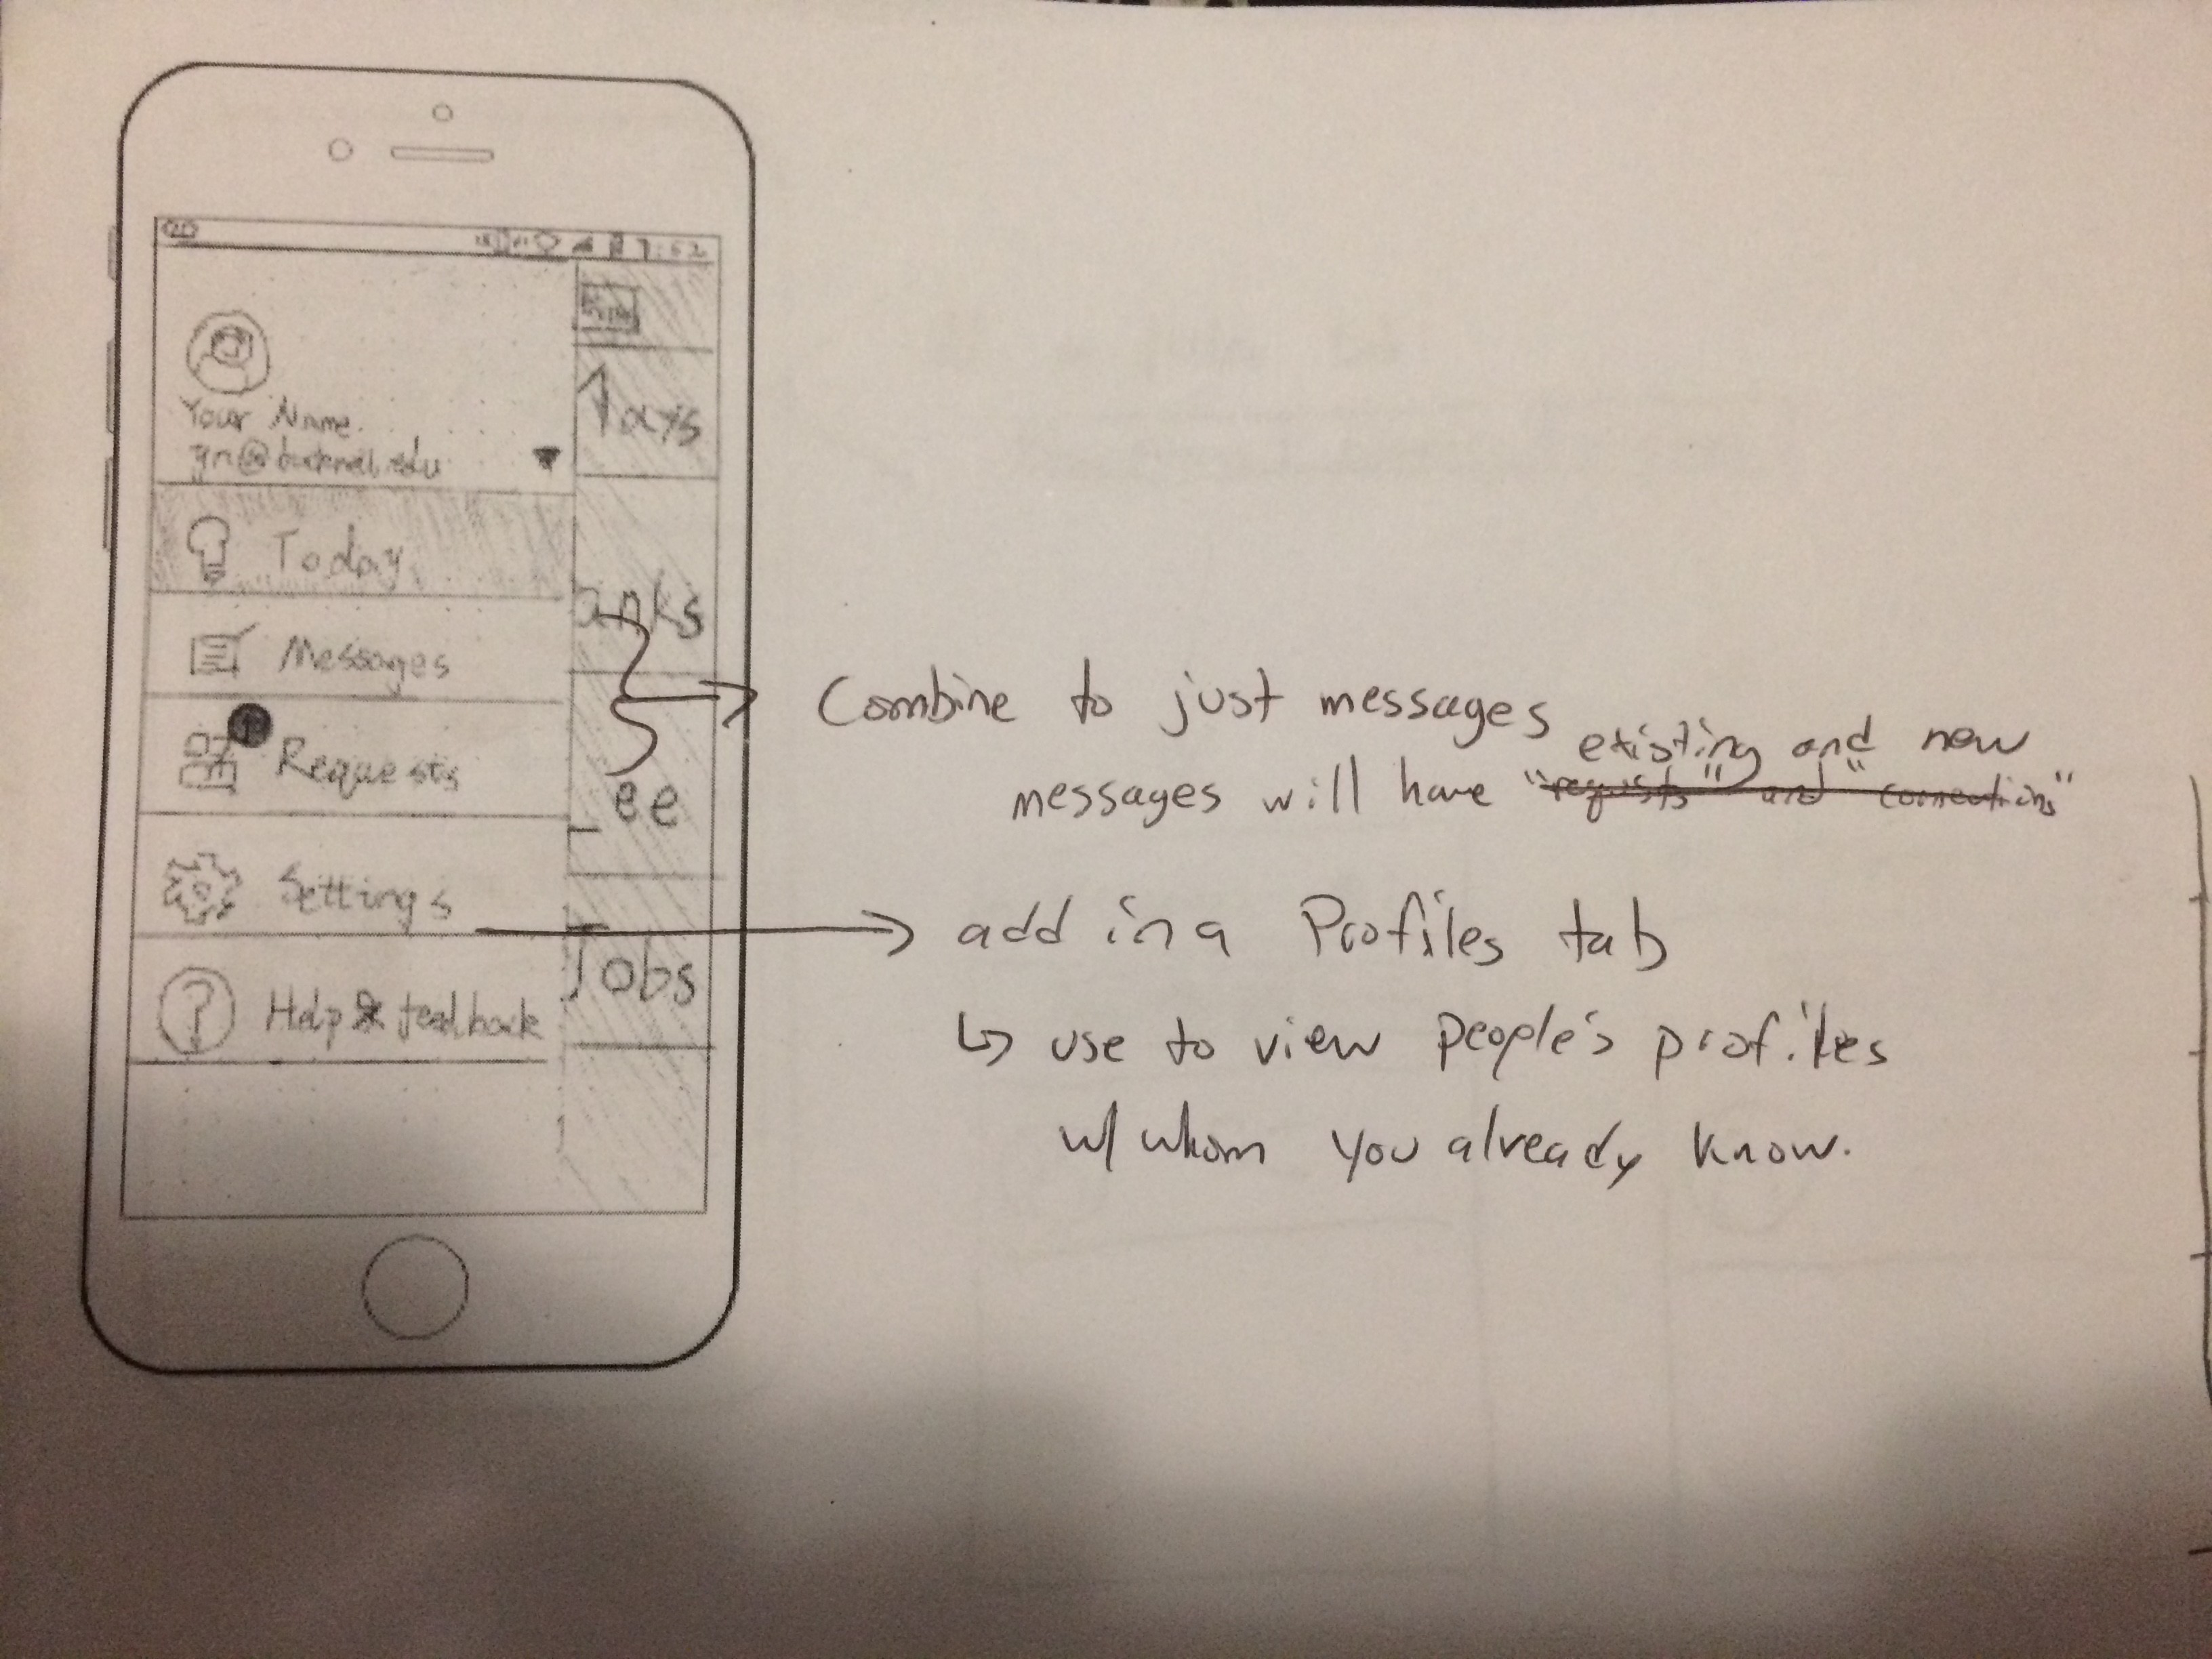 7:52
Your Name
yn@bucknell.edu
Today
Messages
Requests
Settings
Help & feedback
Tays
anks
ee
Jobs
Combine to just messages
existing and new
messages will have "requests" and "connections"
add in a Profiles tab
↳ use to view people's profiles
w/ whom you already know.